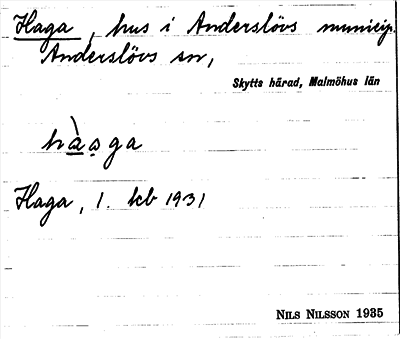 Haga, hus i Anderslövs municip.
Anderslövs sn,
Skytts härad, Malmöhus län
hà̱ạga
Haga, 1. kb 1931
NILS NILSSON 1935